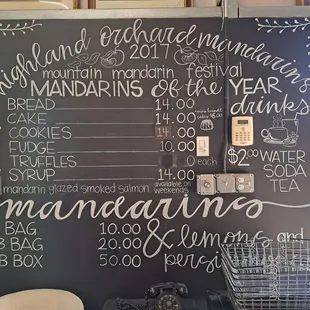 highland orchard mandarins
2017
mountain mandarin festival
MANDARINS of the YEAR
BREAD 14.00
CAKE 14.00
COOKIES 14.00
FUDGE 10.00
TRUFFLES each
SYRUP 14.00
mandarin glazed smoked salmon
available on weekends
drinks
$2.00 WATER
SODA
TEA
mandarins
BAG 10.00
BAG 20.00
BOX 50.00
& lemons and